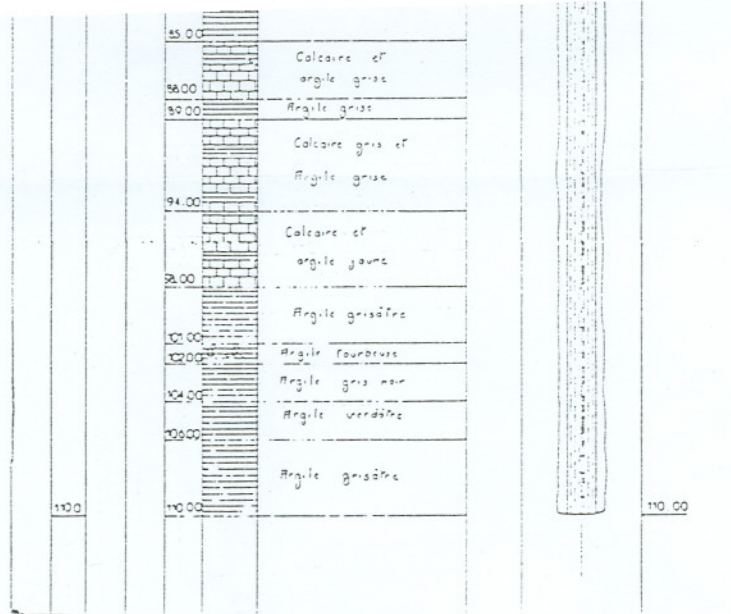 85.00
Calcaire et
argile grise
88.00
Argile grise
89.00
Calcaire gris et
Argile grise
94.00
Calcaire et
argile jaune
98.00
Argile grisâtre
101.00
102.00
Argile tourbeuse
Argile gris noir
104.00
Argile verdâtre
106.00
Argile grisâtre
110.0
110.00
110.00